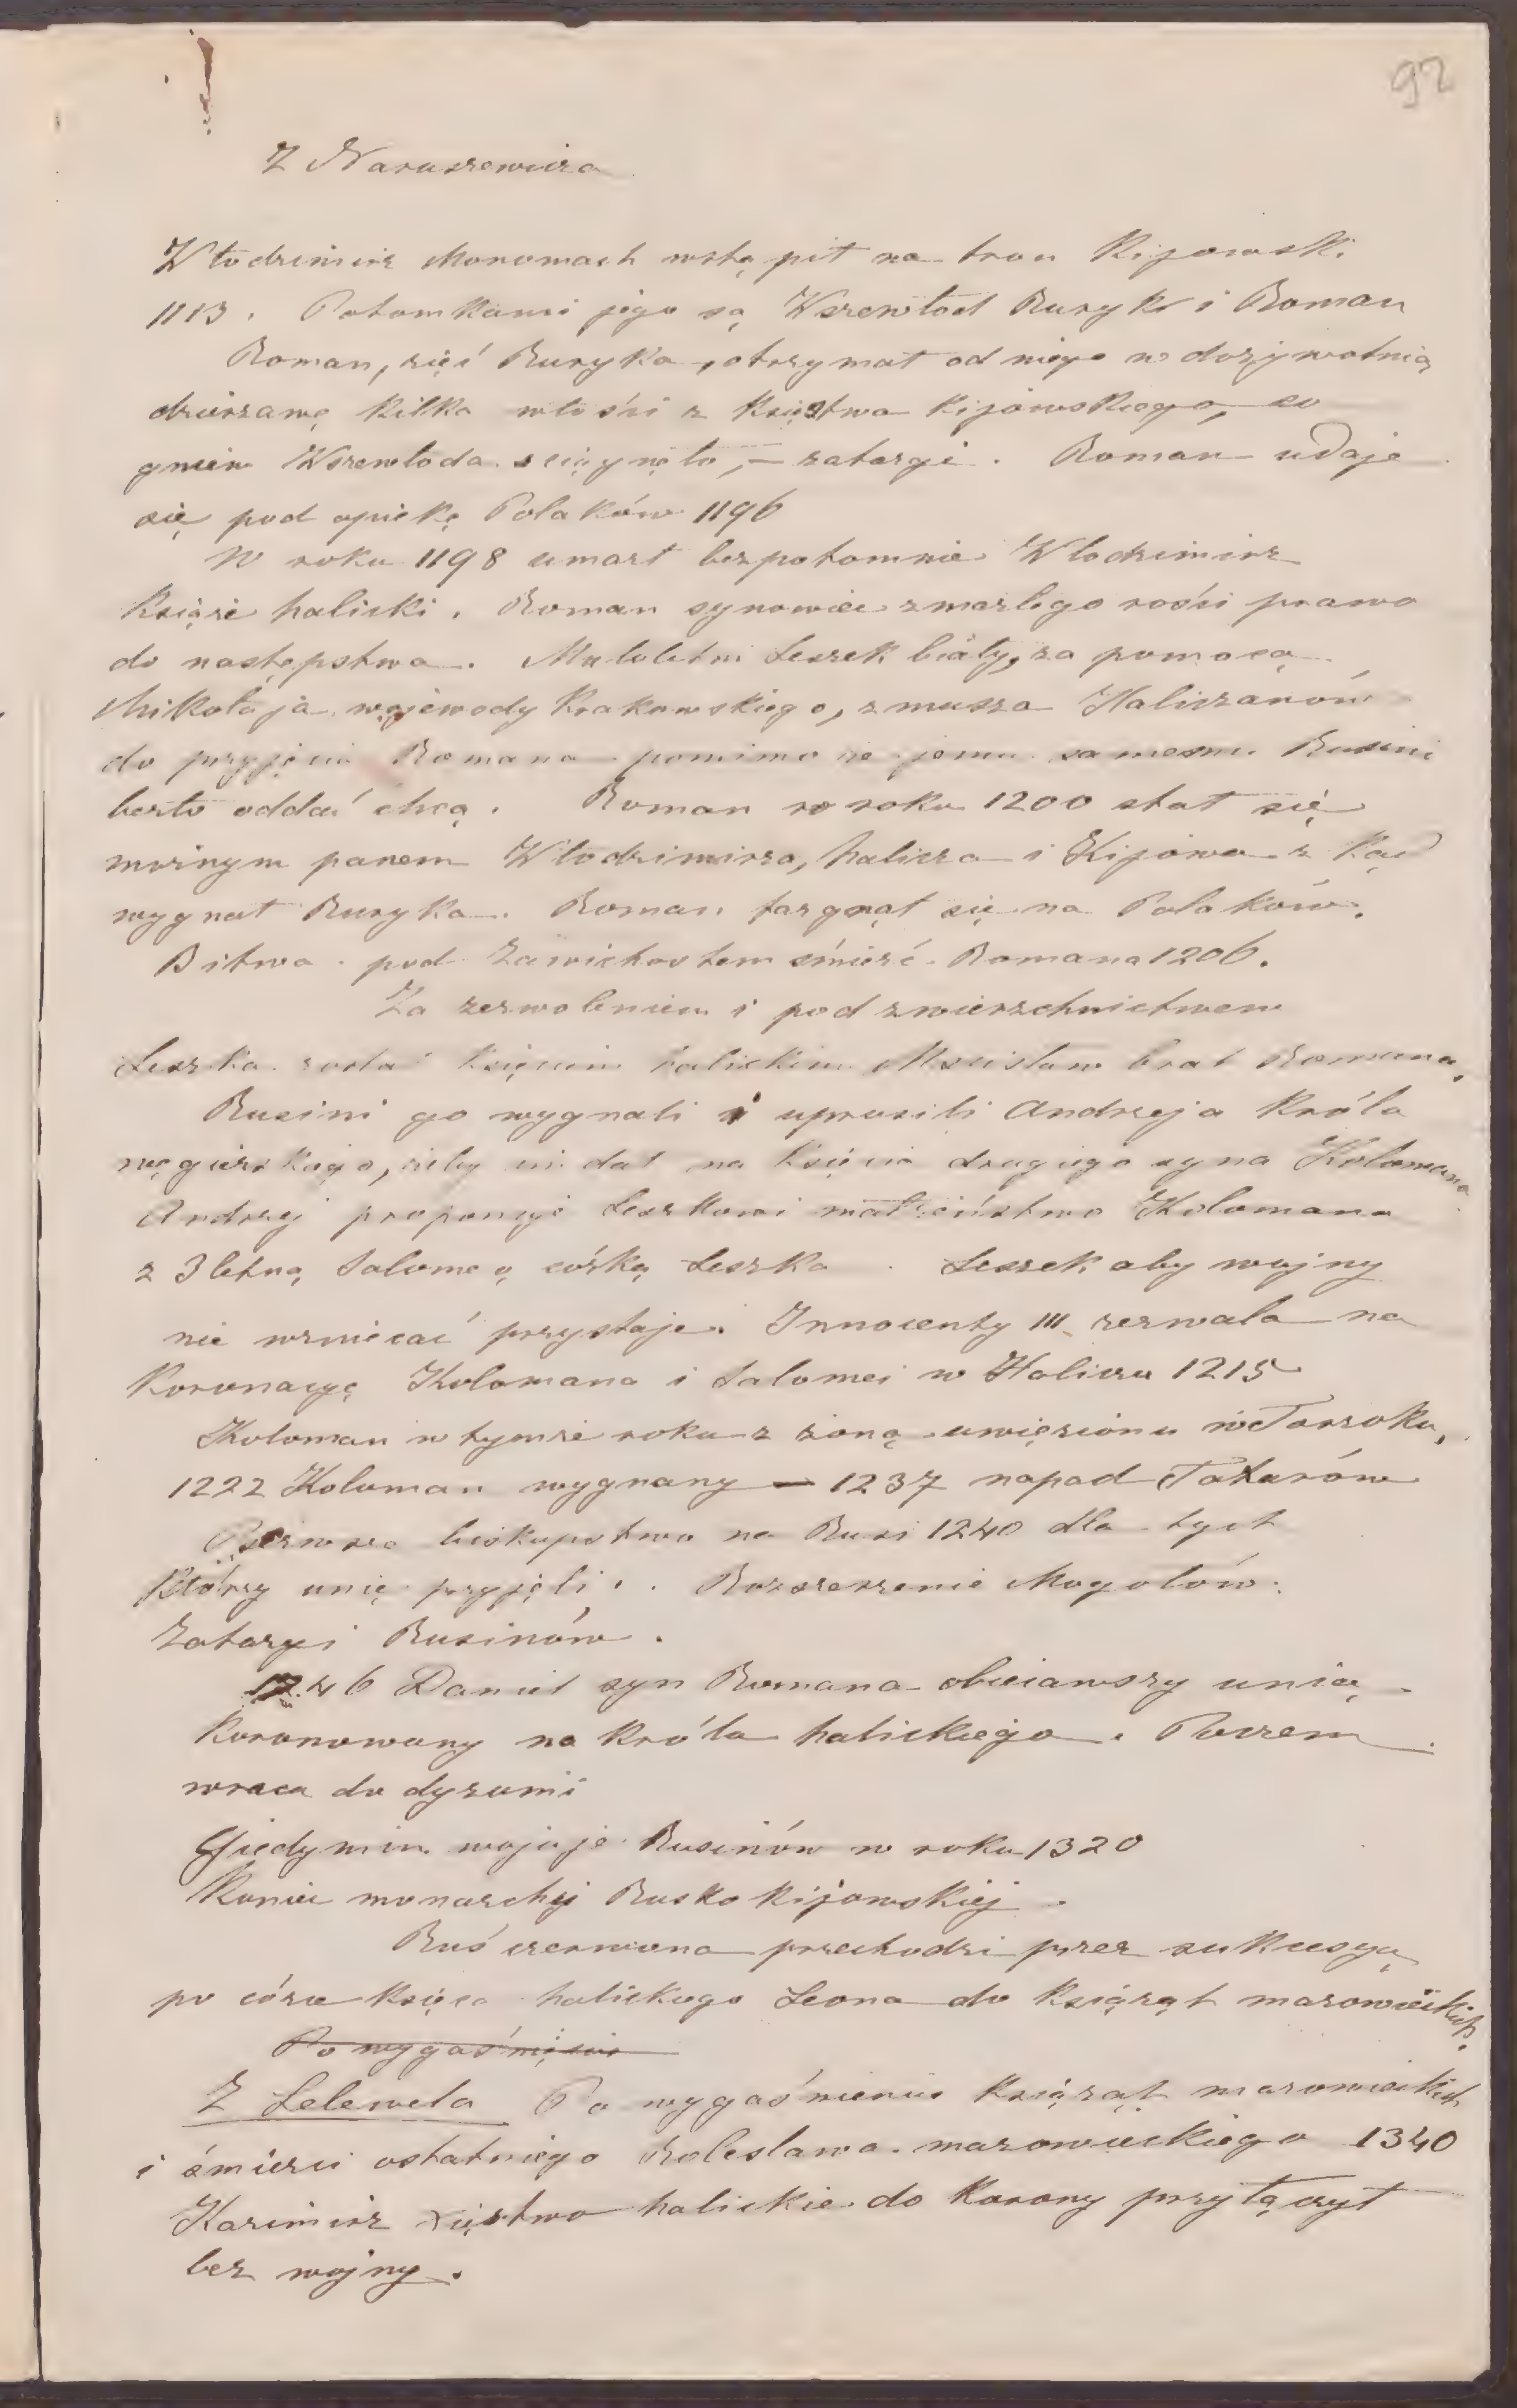 92
Z Naruszewicza
Włodzimirz Monomach wstąpił na tron Kijowski
1113. Potomkami jego są Wszewłod Ruryk i Roman
Roman, zięć Ruryka, otrzymał od niego w dożywotnią
dzierżawę kilka włości z Księstwa Kijowskiego, co
gniew Wszewłoda sciągnęło, — zatargi. Roman udaje
się pod opiekę Polaków 1196
W roku 1198 umarł bezpotomnie Włodzimirz
Książe halicki. Roman synowiec zmarłego rości prawo
do następstwa. Małoletni Leszek biały, za pomocą
Mikołaja wojewody Krakowskiego, zmusza Haliczanów
do przyjęcia Romana pomimo że jemu samemu Rusini
berło oddać chcą. Roman w roku 1200 stał się
możnym panem Włodzimirza, halicza i Kijowa z kąd
wygnał Ruryka. Roman targnął się na Polaków.
Bitwa pod Zawichostem śmierć Romana 1206.
Za zezwoleniem i pod zwierzchnictwem
Leszka został księciem halickim Mscisław brat Romana.
Rusini go wygnali i uprosili Andrzeja Króla
węgierskiego, żeby im dał na księcia drugiego syna Kolomana
Andrzej proponuje Leszkowi małżeństwo Kolomana
z 3letną Salomeą córką Leszka. Leszek aby wojny
nie wzniecać przystaje. Innocenty III zezwala na
Koronacyę Kolomana i Salomei w Haliczu 1215
Koloman w tymże roku z żoną uwięziony w Torzoku,
1222 Koloman wygnany — 1237 napad Tatarów
Pierwsze biskupstwo na Rusi 1240 dla tych
Którzy unię przyjęli. Rozszerzenie Mogołów.
Zatargi Rusinów.
1246 Daniel syn Romana obiecawszy unię
Koronowany na Króla halickiego. Poczem
wraca do dyzunii
Giedymin wojuje Rusinów w roku 1320
Koniec monarchji Rusko Kijowskiej.
Ruś czerwona przechodzi przez sukcesyą
po córce księca halickiego Leona do Książąt mazowieckich.
Po wygaśnięciu
Z Lelewela Po wygaśnieniu Książąt mazowieckich
i śmierci ostatniego Bolesława mazowieckiego 1340
Kazimirz xięstwo halickie do Korony przyłączył
bez wojny.